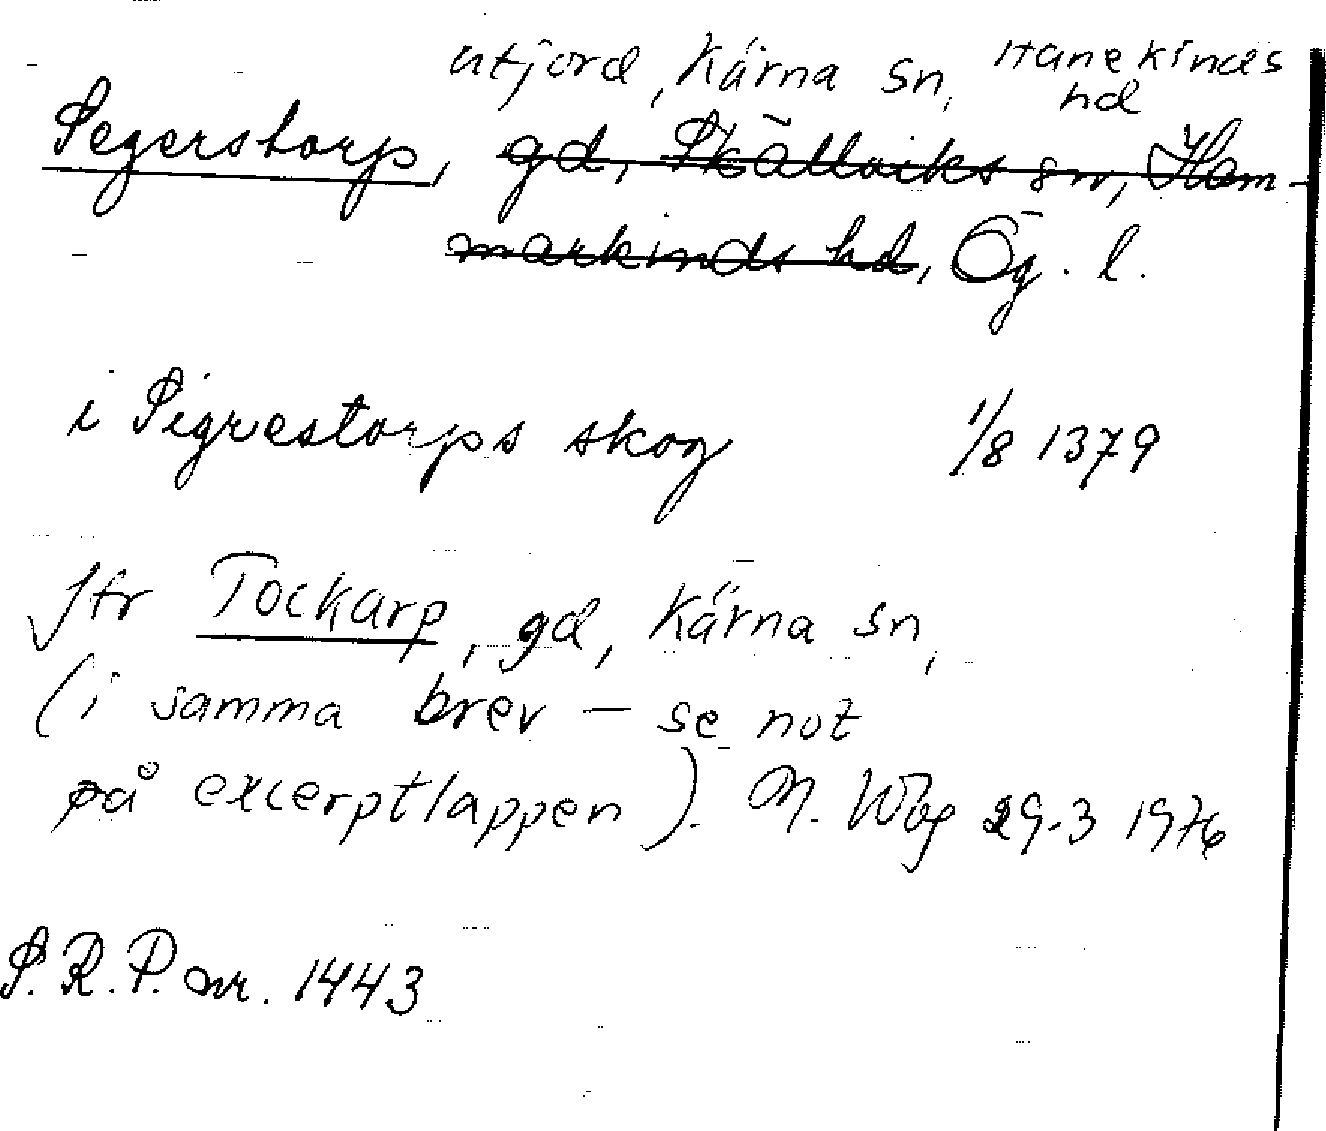 utjord, Kärna sn, Hanekinds
hd
Segerstorp, gd, Skällviks sn, Ham-
markinds hd, Ög. l.
i Sigvestorps skog 1/8 1379
Jfr Tockarp, gd, Kärna sn,
(i samma brev – se not
på excerptlappen). M. Wbg 29.3 1976
S.R.P. nr. 1443